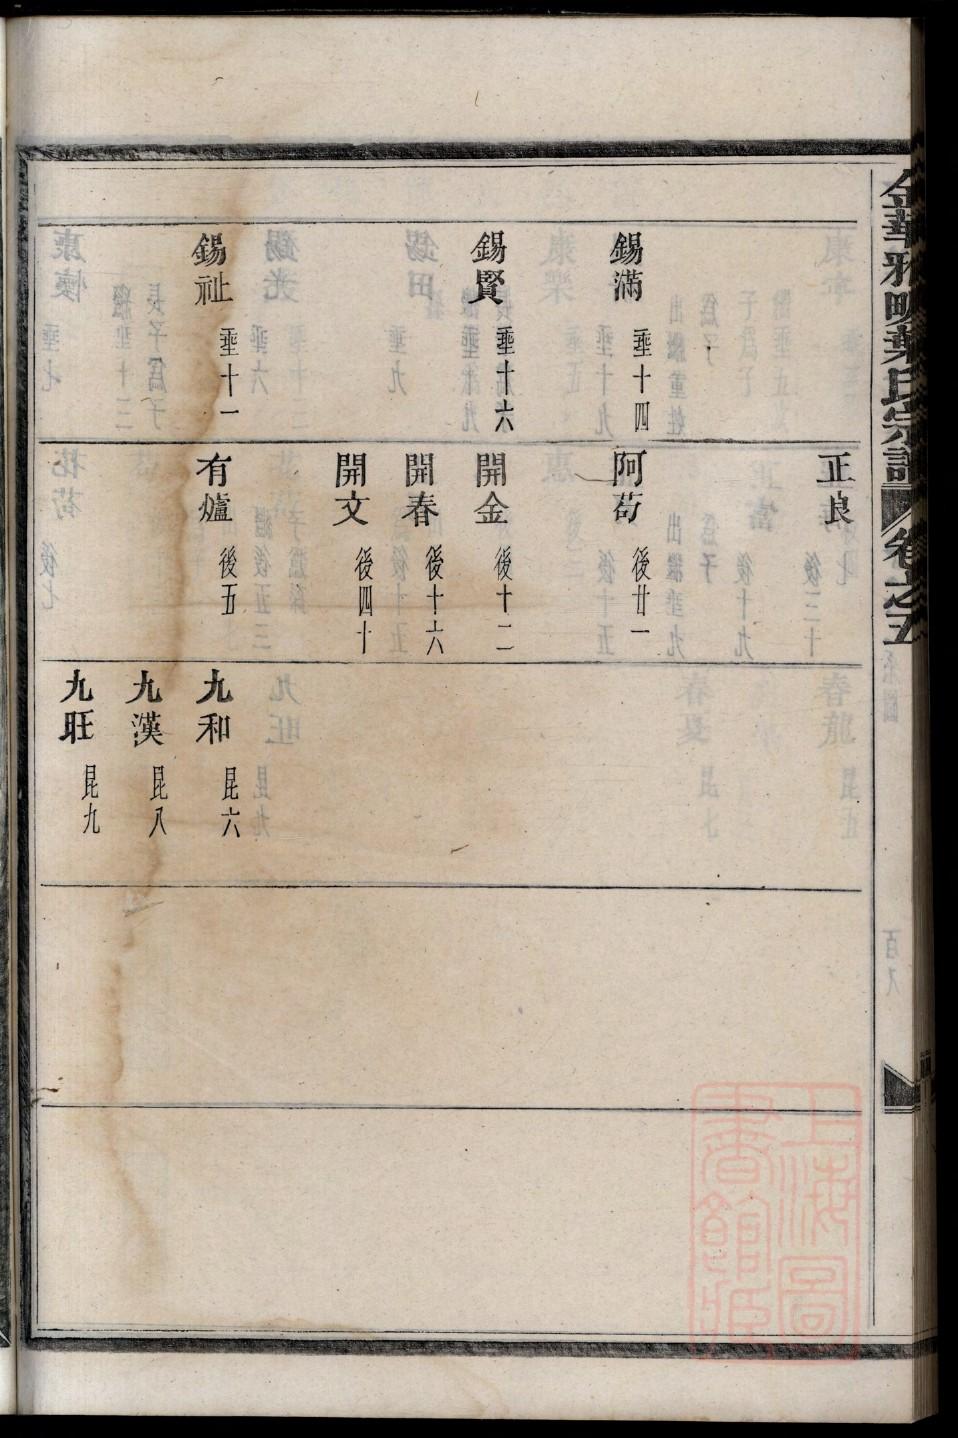 金華雅畈葉氏宗譜 卷之五
錫滿 垂十四
錫賢 垂十六
錫祉 垂十一
正良 後三十
阿苟 後廿一
開金 後十二
開春 後十六
開文 後四十
有爐 後五
九和 昆六
九漢 昆八
九旺 昆九
上海圖書館藏